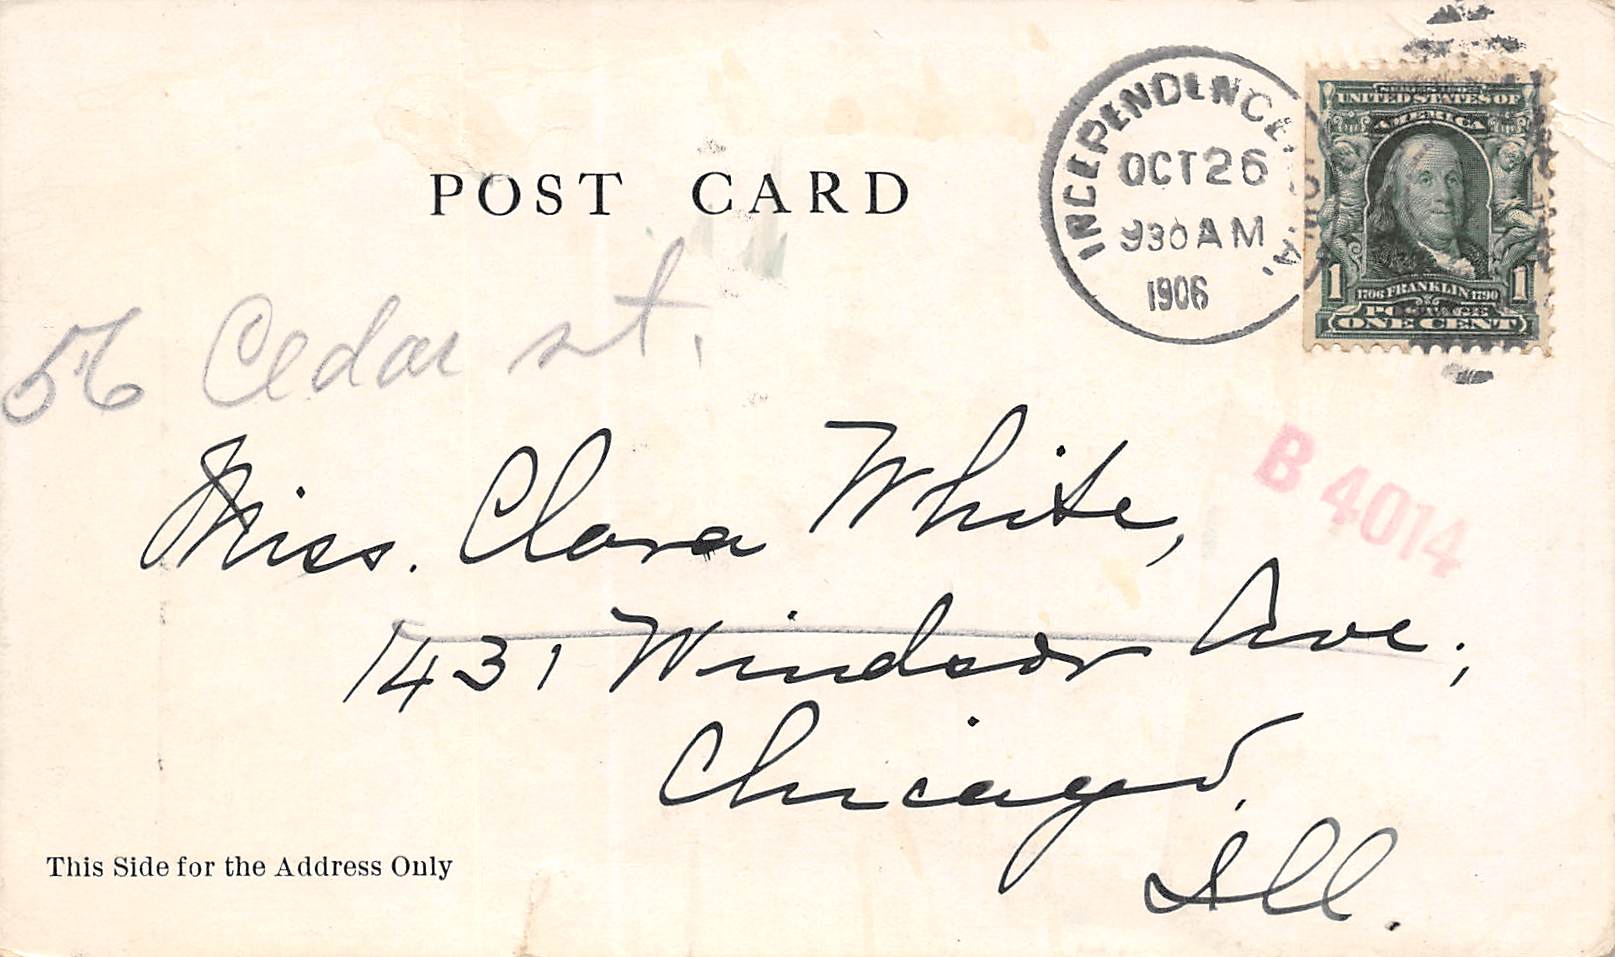 POST CARD
INDEPENDENCE, IOWA.
OCT 26
930 AM
1906
SERIES 1902
UNITED STATES OF
AMERICA
1706 FRANKLIN 1790
1 1
POSTAGE
ONE CENT
56 Cedar st.
B 4014
Miss. Clara White,
1431 Windsor Ave.,
Chicago,
Ill.
This Side for the Address Only